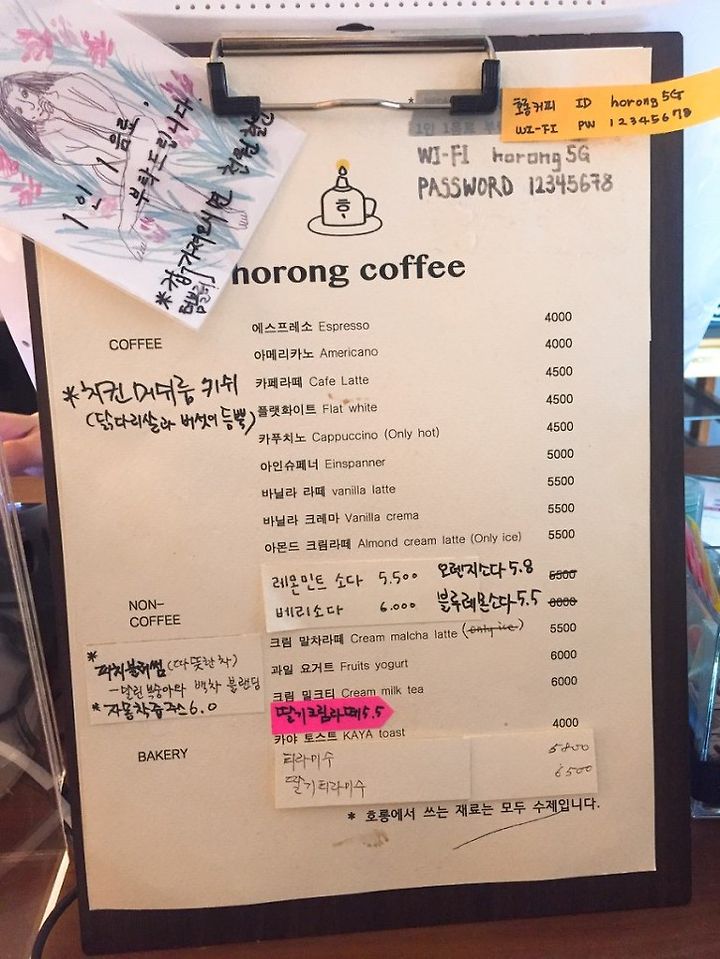 1인 1음료
부탁드립니다.
*컵 가져오시면 천원 할인
텀블러
호롱커피 ID horong5G
WI-FI PW 12345678
WI-FI horong5G
PASSWORD 12345678
horong coffee
COFFEE
에스프레소 Espresso 4000
아메리카노 Americano 4000
카페라떼 Cafe Latte 4500
플랫화이트 Flat white 4500
카푸치노 Cappuccino (Only hot) 4500
아인슈페너 Einspanner 5000
바닐라 라떼 vanilla latte 5500
바닐라 크레마 Vanilla crema 5500
아몬드 크림라떼 Almond cream latte (Only ice) 5500
*치킨 머쉬룸 키쉬
(닭다리살과 버섯이 듬뿍)
NON-
COFFEE
레몬민트 소다 5.500 오렌지소다 5.8 5500
베리소다 6.000 블루레몬소다 5.5
크림 말차라떼 Cream malcha latte (only ice) 5500
과일 요거트 Fruits yogurt 6000
크림 밀크티 Cream milk tea 6000
딸기크림라떼 5.5
*피치블러썸 (따뜻한 차)
-달린 복숭아와 백차 블랜딩
*자몽착즙주스 6.0
BAKERY
카야 토스트 KAYA toast 4000
티라미수 5800
딸기티라미수 6500
* 호롱에서 쓰는 재료는 모두 수제입니다.